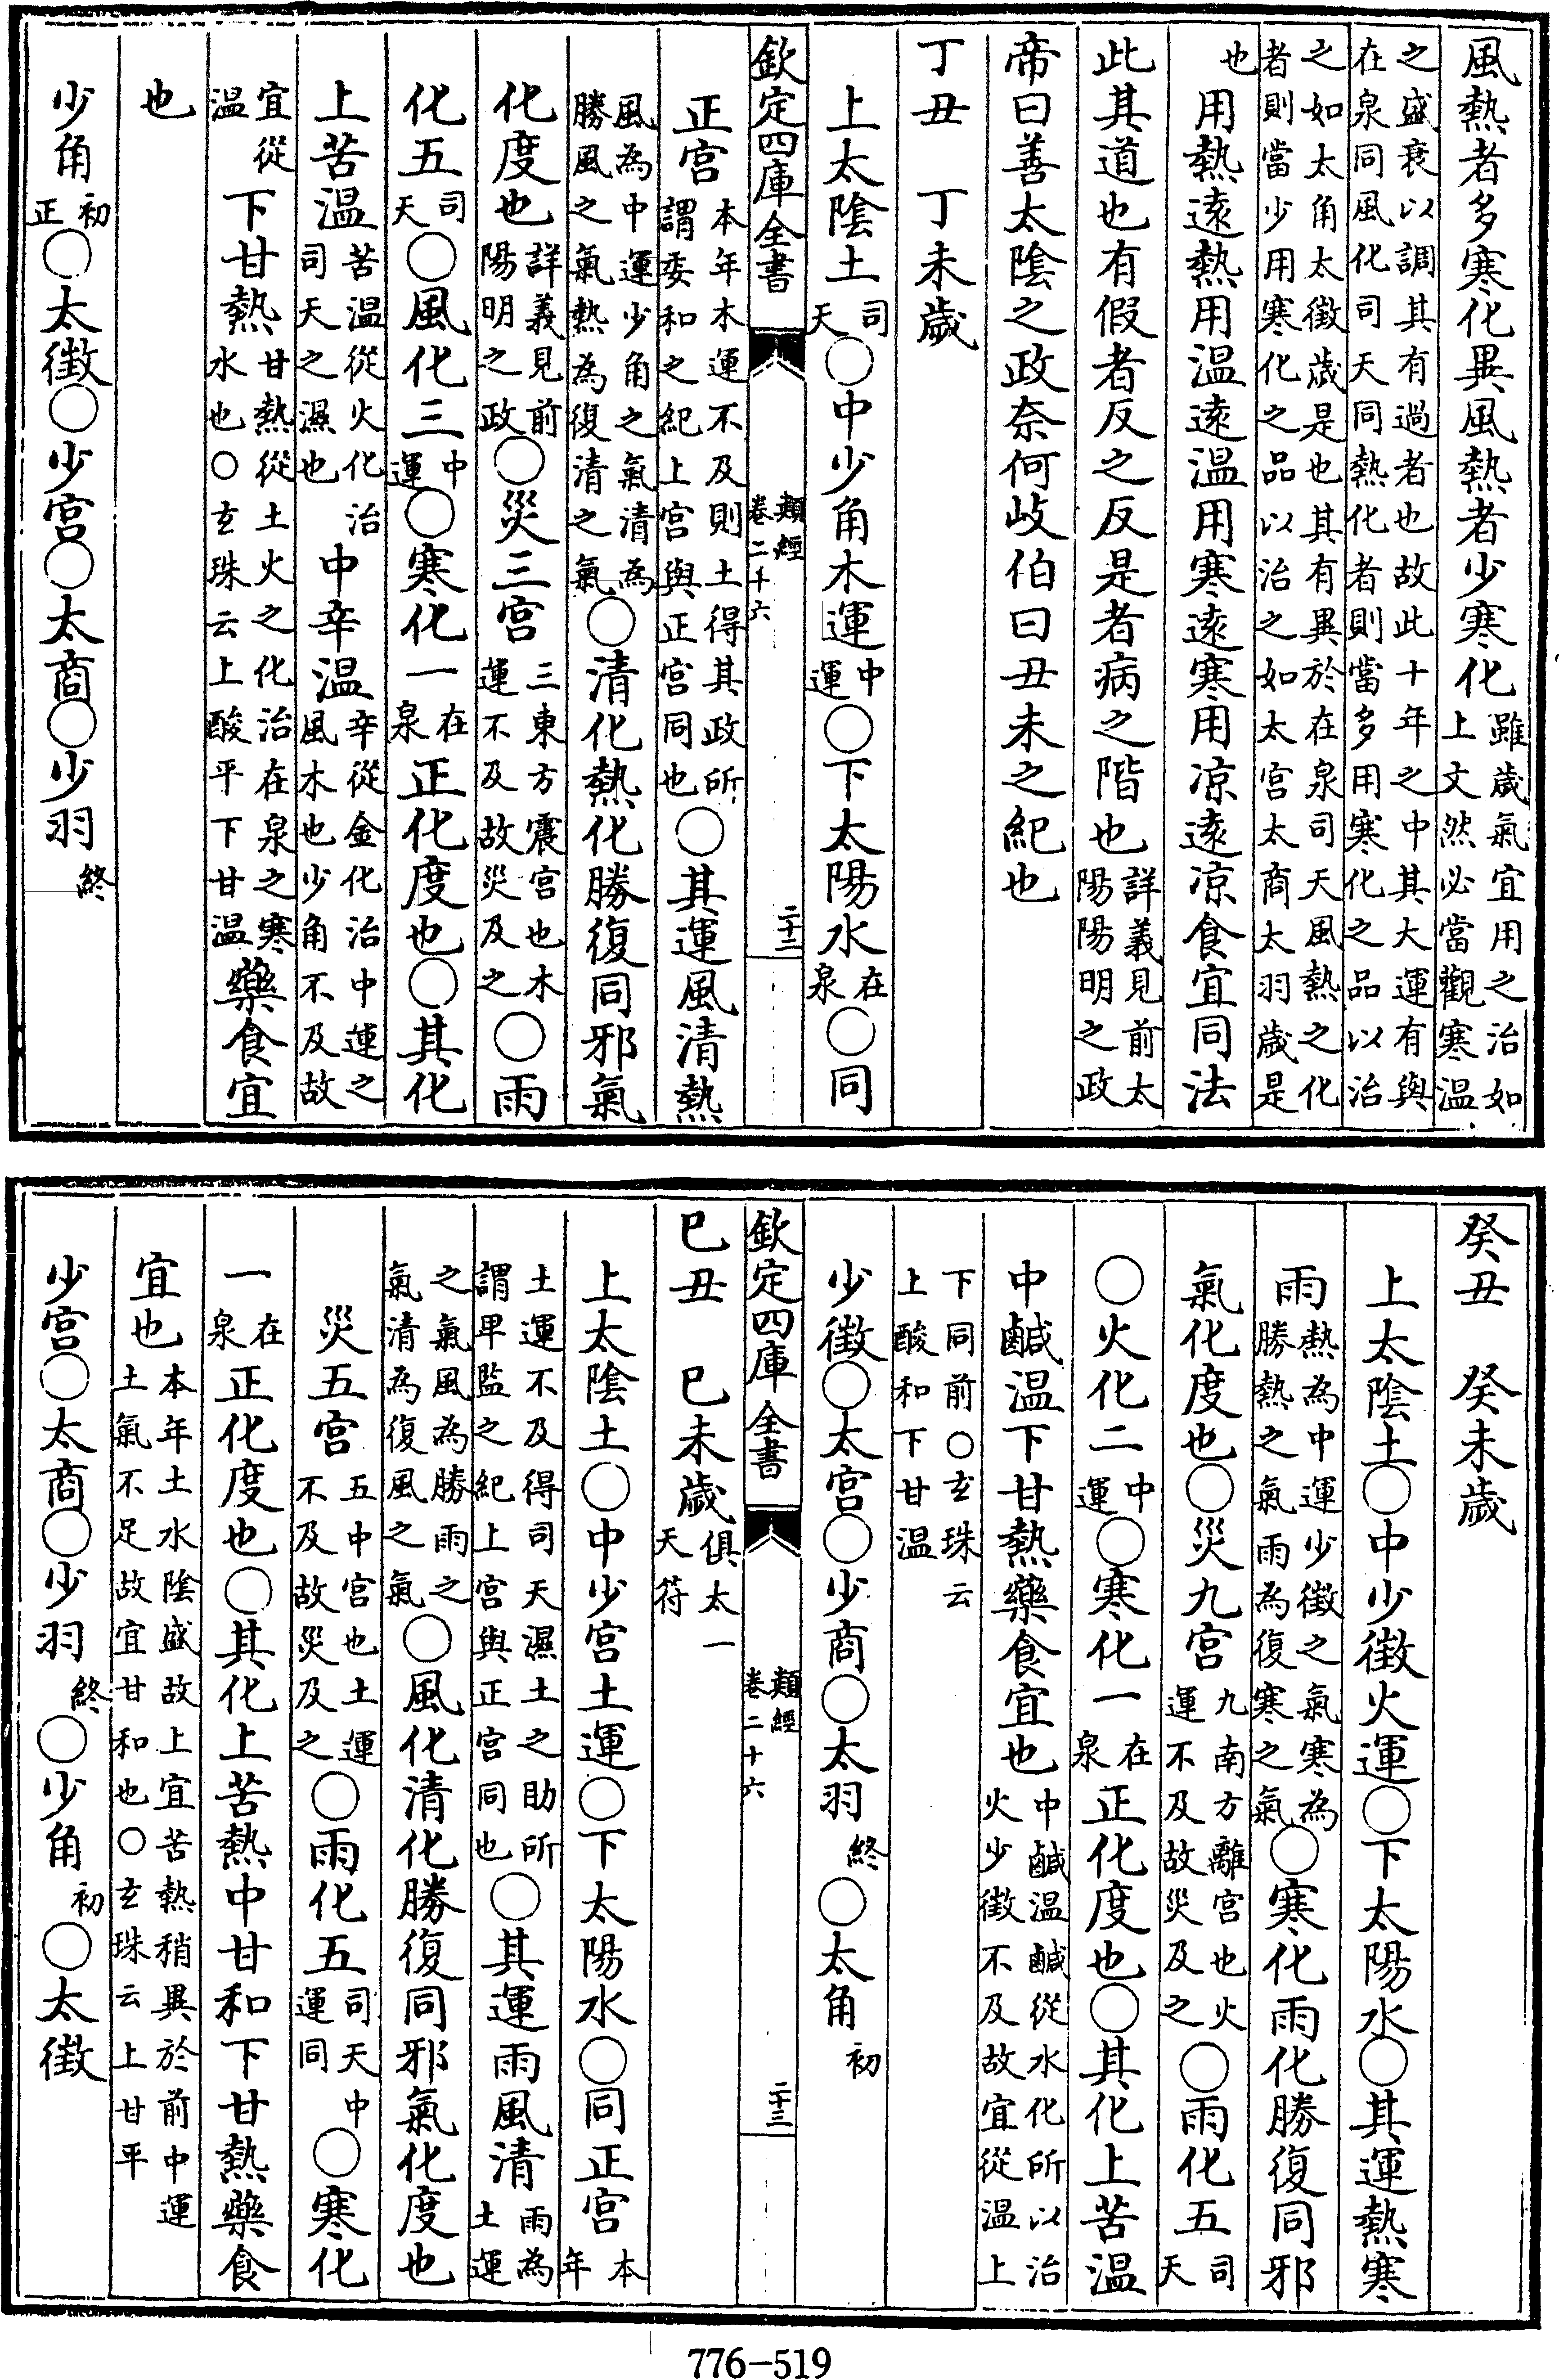 風熱者多寒化異風熱者少寒化雖歲氣宜用之治如上文然必當觀寒温
之盛衰以調其有過者也故此十年之中其大運有與在泉同風化司天同熱化者則當多用寒化之品以治
之如太角太徵歲是也其有異於在泉司天風熱之化者則當少用寒化之品以治之如太宫太商太羽歲是
也用熱逺熱用温逺温用寒逺寒用凉逺凉食宜同法
此其道也有假者反之反是者病之階也詳義見前太陽陽明之政
帝曰善太陰之政奈何岐伯曰丑未之紀也
丁丑　丁未歲
上太陰土司天○中少角木運中運○下太陽水在泉○同
欽定四庫全書　類經卷二十六　二十二
正宫本年木運不及則土得其政所謂委和之紀上宫與正宫同也○其運風清熱
風為中運少角之氣清為勝風之氣熱為復清之氣○清化熱化勝復同邪氣
化度也詳義見前陽明之政○災三宫三東方震宫也木運不及故災及之○雨
化五司天○風化三中運○寒化一在泉正化度也○其化
上苦温苦温從火化治司天之濕也中辛温辛從金化治中運之風木也少角不及故
宜從温下甘熱甘熱從土火之化治在泉之寒水也○玄珠云上酸平下甘温藥食宜
也
少角初正○太徵○少宫○太商○少羽終
癸丑　癸未歲
上太陰土○中少徵火運○下太陽水○其運熱寒
雨熱為中運少徵之氣寒為勝熱之氣雨為復寒之氣○寒化雨化勝復同邪
氣化度也○災九宫九南方離宫也火運不及故災及之○雨化五司天
○火化二中運○寒化一在泉正化度也○其化上苦温
中鹹温下甘熱藥食宜也中鹹温鹹從水化所以治火少徵不及故宜從温上
下同前○玄珠云上酸和下甘温
少徵○太宫○少商○太羽終○太角初
欽定四庫全書　類經卷二十六　二十三
巳丑　巳未歲俱太一天符
上太陰土○中少宫土運○下太陽水○同正宫本年
土運不及得司天濕土之助所謂卑監之紀上宫與正宫同也○其運雨風清雨為土運
之氣風為勝雨之氣清為復風之氣○風化清化勝復同邪氣化度也
災五宫五中宫也土運不及故災及之○雨化五司天中運同○寒化
一在泉正化度也○其化上苦熱中甘和下甘熱藥食
宜也本年土水陰盛故上宜苦熱稍異於前中運土氣不足故宜甘和也○玄珠云上甘平
少宫○太商○少羽終○少角初○太徵
776-519